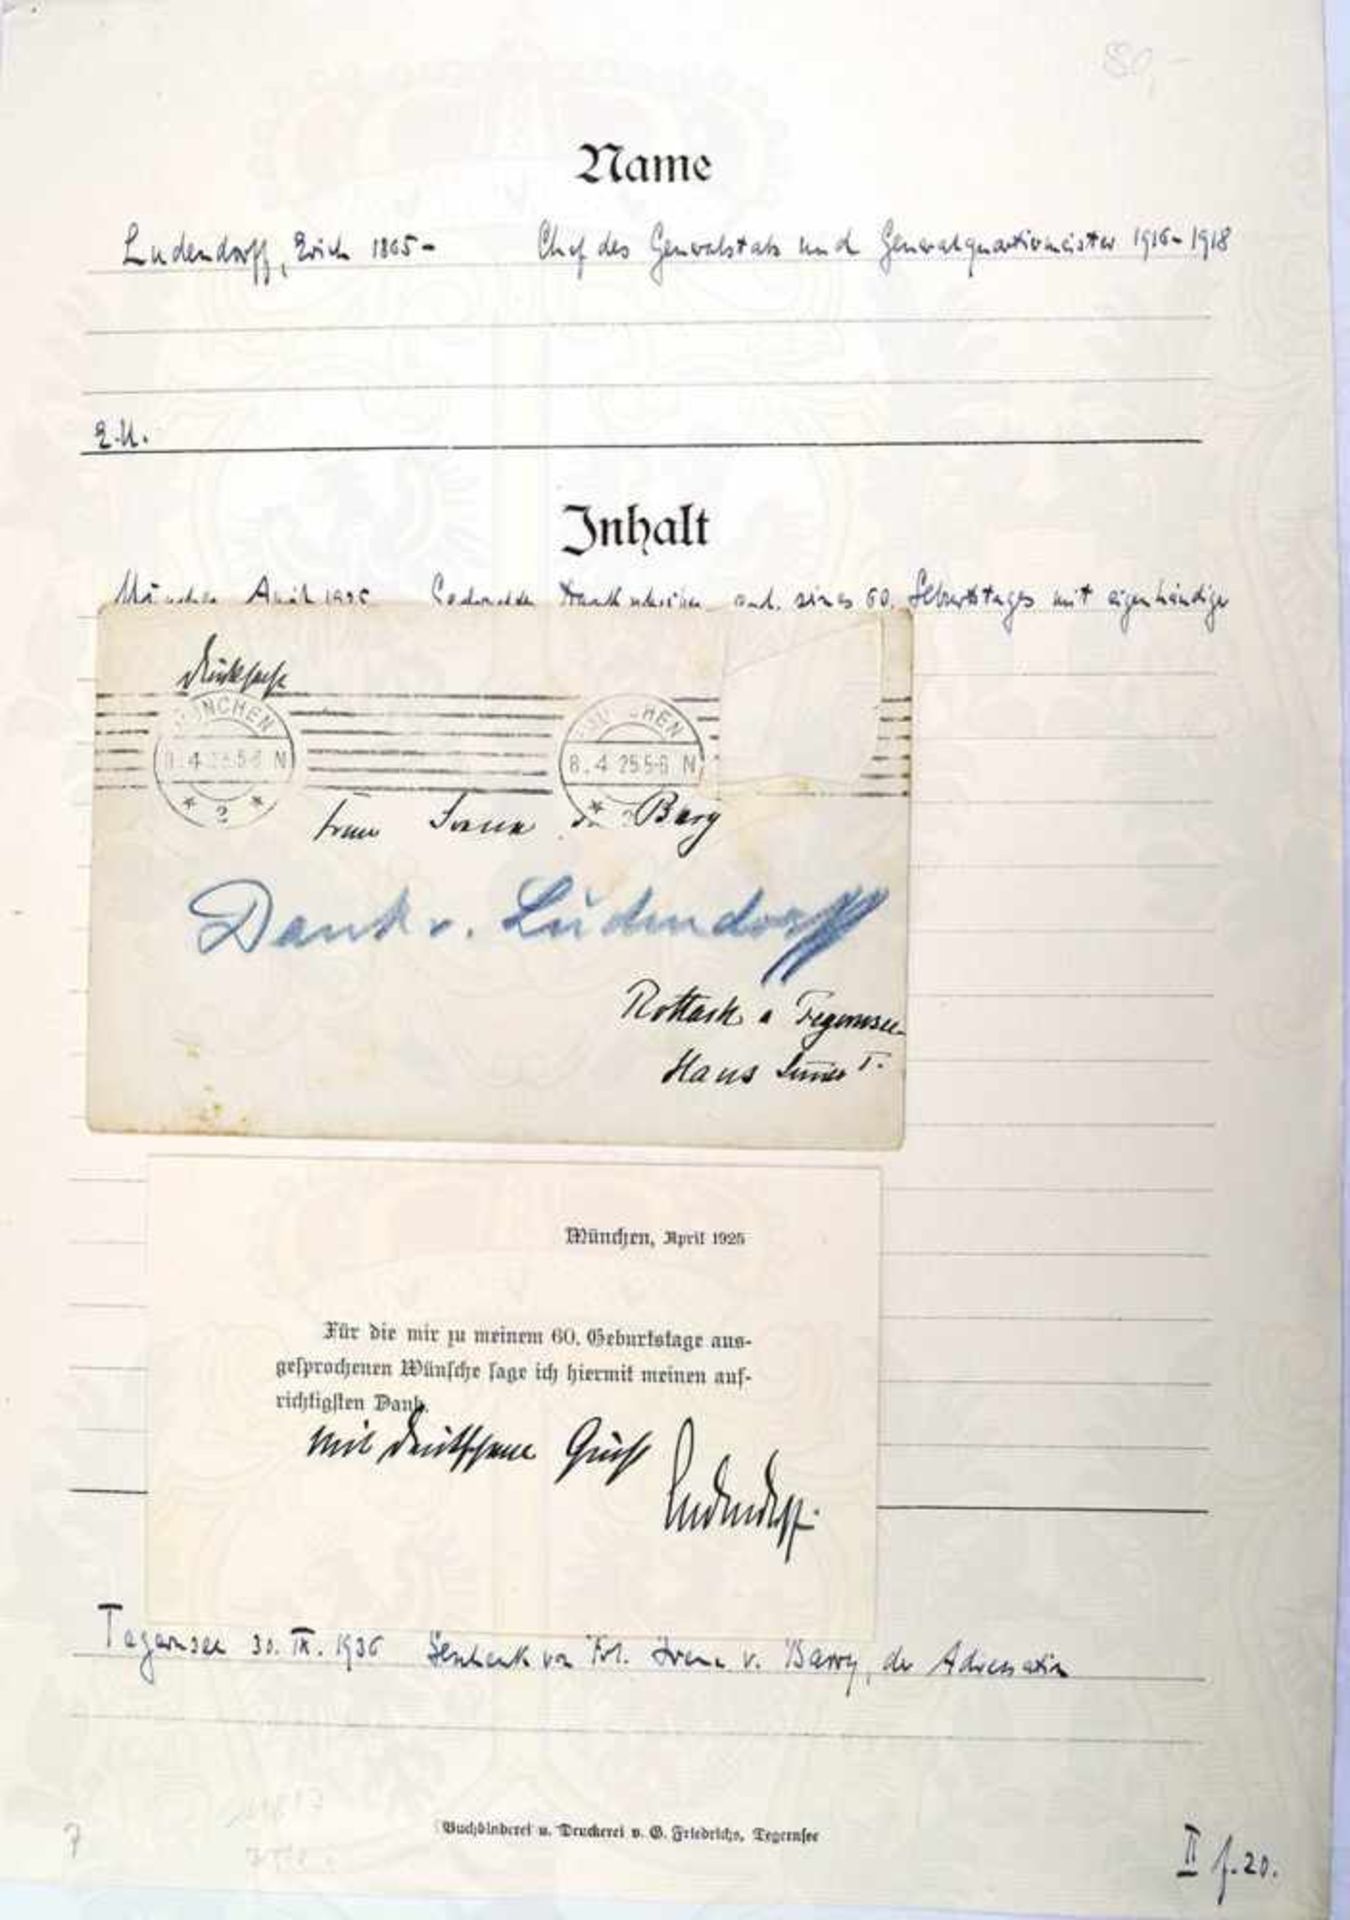 80,-
Name
Ludendorff, Erich 1865- Chef des Generalstabs und Generalquartiermeister 1916-1918
E.U.
Inhalt
München April 1925 Gedruckte Dankschreiben anl. seines 60. Geburtstages mit eigenhändige
Drucksache
MÜNCHEN
8.4 25 5-6 N
* 2 *
MÜNCHEN
8.4 25 5-6 N
*
Frau Irena Bary
Dank v. Ludendorff
Rottach a Tegernsee
Haus
München, April 1925
Für die mir zu meinem 60. Geburtstage aus-
gesprochenen Wünsche sage ich hiermit meinen auf-
richtigsten Dank.
Mit deutschem Gruß
Ludendorff.
Tegernsee 30. IX. 1936 Geschenk von Frl. Irena v. Barry, der Adressatin
Buchbinderei u. Druckerei v. G. Friedrichs, Tegernsee
7
II f. 20.